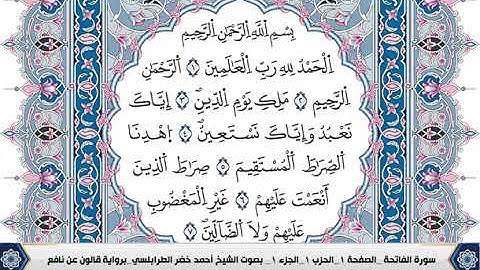 بِسْمِ اِ۬للَّهِ اِ۬لرَّحْمَٰنِ اِ۬لرَّحِيمِ
اِ۬لْحَمْدُ لِلهِ رَبِّ اِ۬لْعَٰلَمِينَ ١ اَ۬لرَّحْمَٰنِ
اِ۬لرَّحِيمِ ٢ مَلِكِ يَوْمِ اِ۬لدِّينِ ٣ إِيَّاكَ
نَعْبُدُ وَإِيَّاكَ نَسْتَعِينُ ٤ اُ۪هْدِنَا
اَ۬لصِّرَٰطَ اَ۬لْمُسْتَقِيمَ ٥ صِرَٰطَ اَ۬لذِينَ
أَنْعَمْتَ عَلَيْهِمْ ٦ غَيْرِ اِ۬لْمَغْضُوبِ
عَلَيْهِمْ وَلَا اَ۬لضَّآلِّينَ ٧
سورة الفاتحة _الصفحة ١_الحزب ١_الجزء ١_ بصوت الشيخ أحمد خضر الطرابلسي_برواية قالون عن نافع